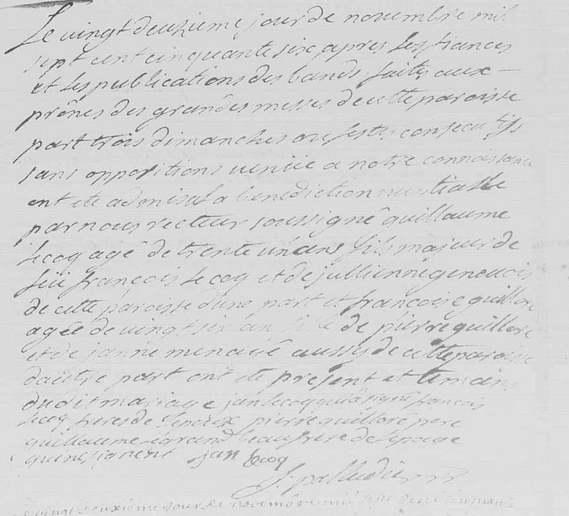 Le vingt deuxieme jour de novembre mil
sept cent cinquante six apres les fiances
et les publications des bands faites aux
prônes des grandes messes de cette paroisse
part trois dimanches ou festes consecutifs
sans opposition venüe a notre connoissance
ont ete admis a la benediction nuptialle
par nous recteur soussigné guillaume
lecoq agé de trente un ans fils majeur de
feu francois le coq et de jullienne
de cette paroisse d'une part et francoise guilloré
agée de vingt six an fille de pierre guilloré
et de janne menagé aussy de cette paroisse
d'autre part ont ete present et temoins
du dit mariage jan lecoq qui a signé francois
lecoq freres de l'epoux pierre guilloré pere
guillaume legrand beaufrere de l'epouse
qui ne signent jan lecoq